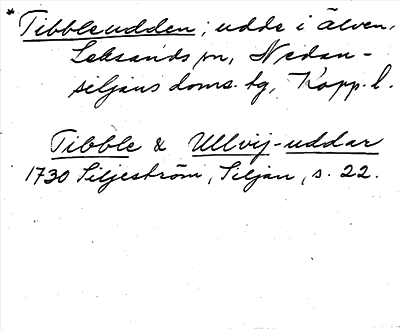 *Tibbleudden; udde i älven.
Leksands sn, Nedan-
siljans doms. tg, Kopp. l.
Tibble & Ullvij-uddar
1730 Siljeström, Siljan, s. 22.